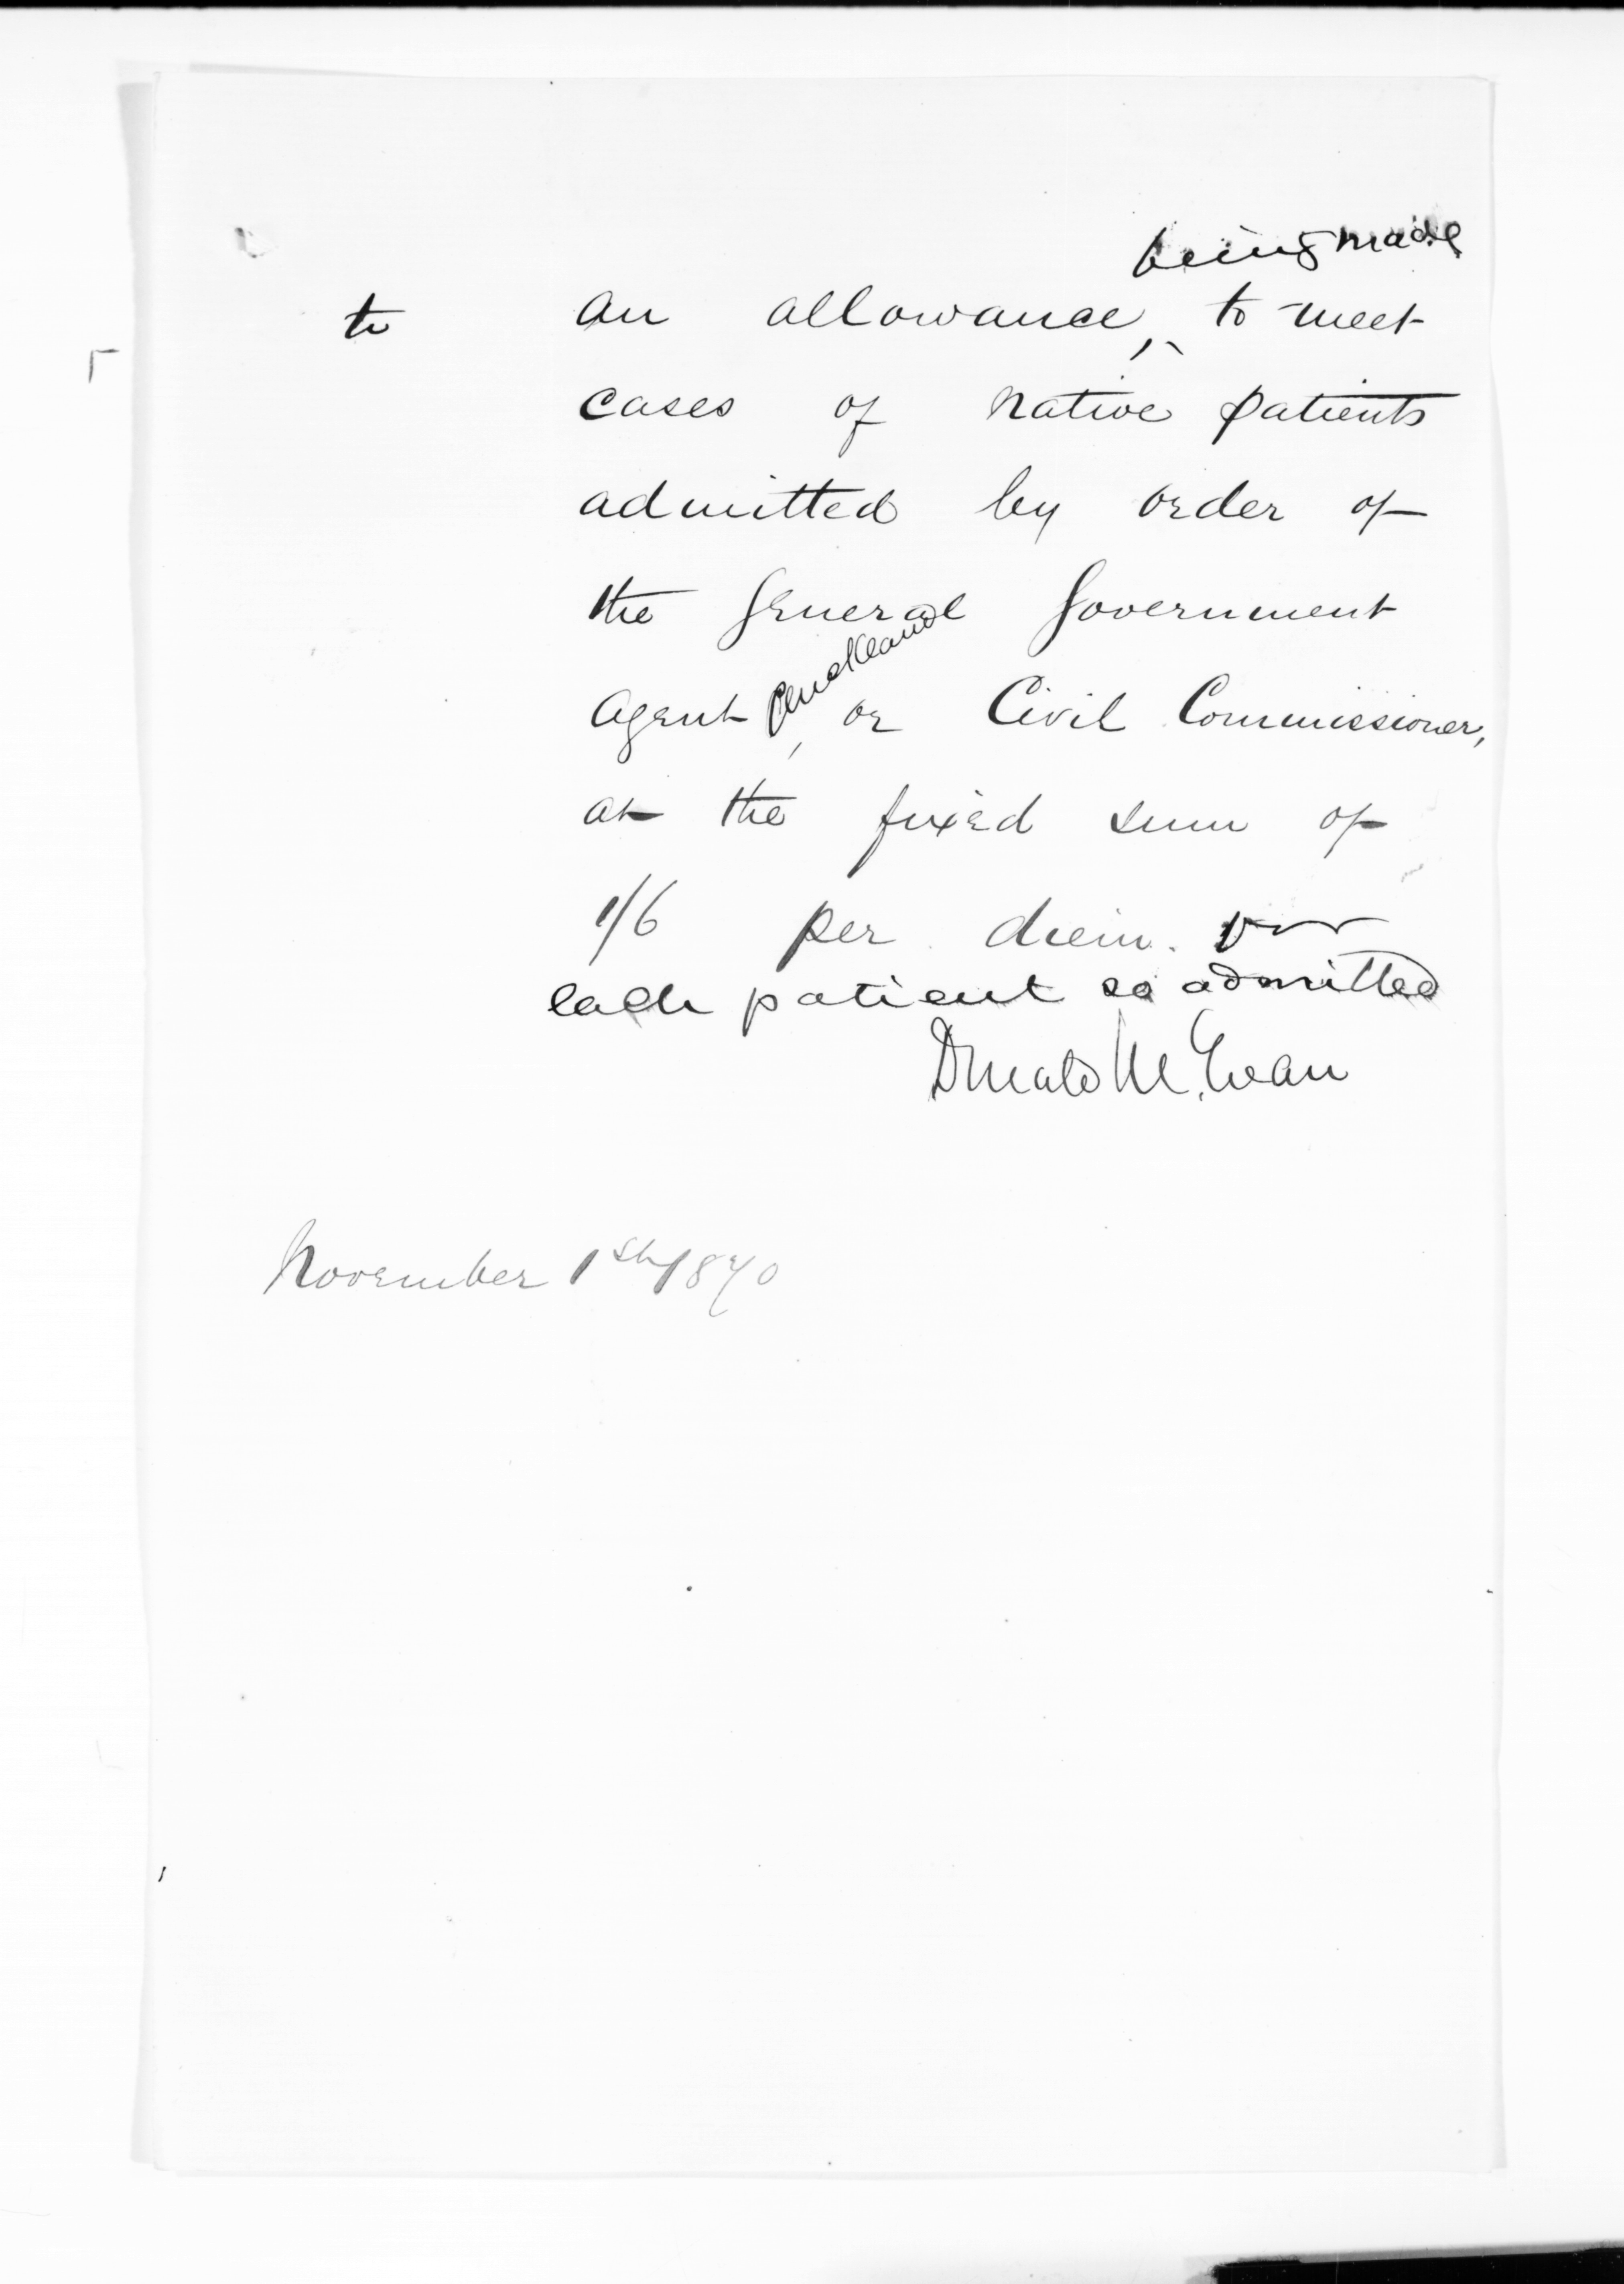 being made
to an allowance, to meet
cases of native patients
admitted by order of
the General Government
Agent Auckland, or Civil Commissioner,
at the fixed sum of
1/6 per diem. for
each patient so admitted
Donald McLean
November 1st 1870